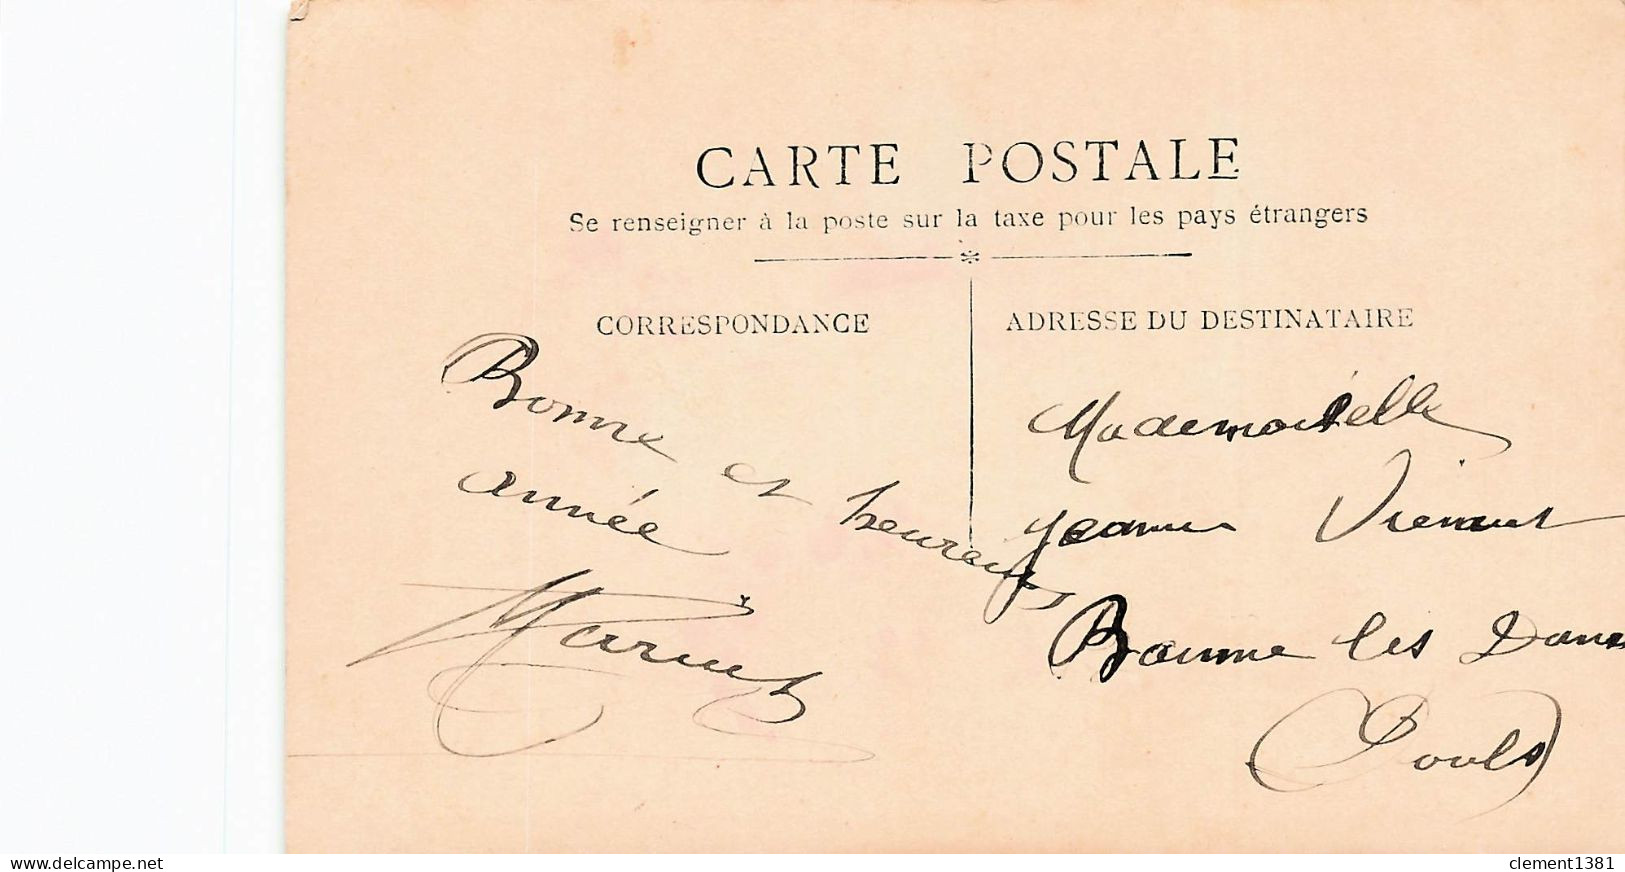 CARTE POSTALE
Se renseigner à la poste sur la taxe pour les pays étrangers
CORRESPONDANCE
Bonne et heureuse
année
ADRESSE DU DESTINATAIRE
Mademoiselle
Jeanne
Baume les Dames
(Doubs)
www.delcampe.net
clement1381